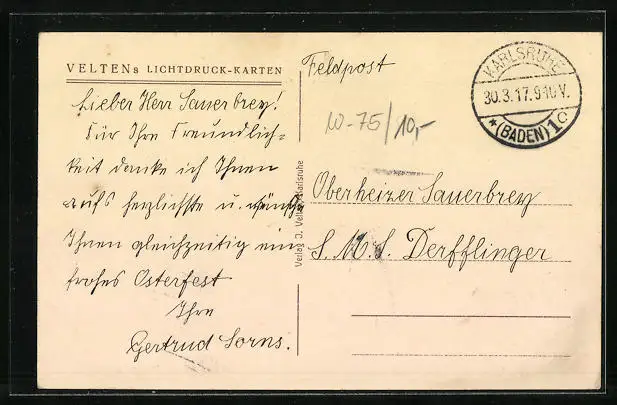 VELTENs LICHTDRUCK-KARTEN
Lieber Herr Sauerbrey!
Für Ihre Freundlich=
keit danke ich Ihnen
aufs herzlichste u. wünsche
Ihnen gleichzeitig ein
frohes Osterfest
Ihre
Gertrud Sorns.
Verlag J. Velten Karlsruhe
Feldpost
W-75/10,-
Oberheizer Sauerbrey
S.M.S. Derfflinger
KARLSRUHE
30.3.17.9-10V.
*(BADEN)1